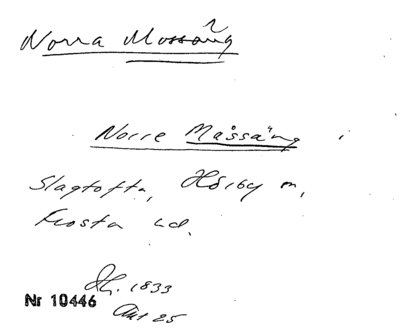 Norra Mossäng
Norre Måssäng i
Slagtofta, Hörby sn,
Frosta hd.
1833
Nr 10446
Akt 25